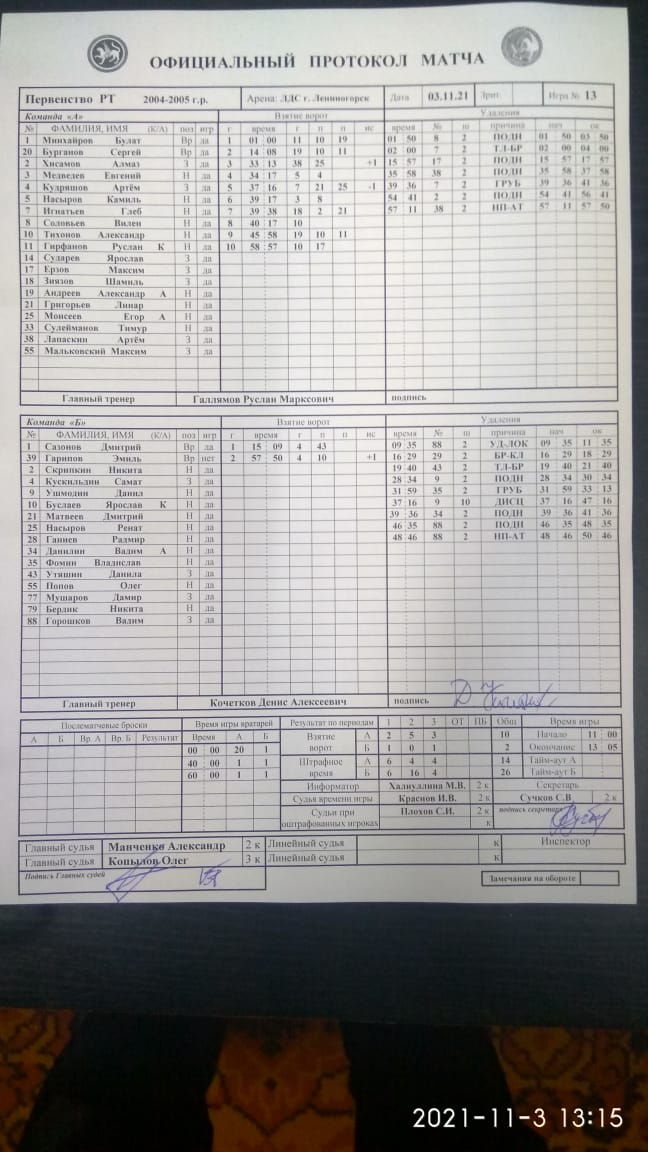 ОФИЦИАЛЬНЫЙ ПРОТОКОЛ МАТЧА
Первенство РТ 2004-2005 г.р. Арена: ЛДС г. Лениногорск Дата 03.11.21 Зрит. Игра № 13
Команда «А» Взятие ворот Удаления
№ ФАМИЛИЯ, ИМЯ (К/А) поз игр г время г п п ис время № ш причина нач ок
1 Минхайров Булат Вр да 1 01 00 11 10 19 01 50 8 2 ПОДН 01 50 03 50
20 Бурганов Сергей Вр да 2 14 08 19 10 11 02 00 7 2 ТЛ-БР 02 00 04 00
2 Хисамов Алмаз З да 3 33 13 38 25 +1 15 57 17 2 ПОДН 15 57 17 57
3 Медведев Евгений Н да 4 34 17 5 4 35 58 38 2 ПОДН 35 58 37 58
4 Кудряшов Артём З да 5 37 16 7 21 25 -1 39 36 7 2 ГРУБ 39 36 41 36
5 Насыров Камиль Н да 6 39 17 3 8 54 41 2 2 ПОДН 54 41 56 41
7 Игнатьев Глеб Н да 7 39 38 18 2 21 57 11 38 2 НП-АТ 57 11 57 50
8 Соловьев Вилен Н да 8 40 17 10
10 Тихонов Александр Н да 9 45 58 19 10 11
11 Гирфанов Руслан К Н да 10 58 57 10 17
14 Сударев Ярослав З да
17 Ерзов Максим З да
18 Зиязов Шамиль З да
19 Андреев Александр А Н да
21 Григорьев Линар Н да
25 Моисеев Егор А Н да
33 Сулейманов Тимур Н да
38 Лапаскин Артём З да
55 Мальковский Максим З да
Главный тренер Галлямов Руслан Марксович подпись
Команда «Б» Взятие ворот Удаления
№ ФАМИЛИЯ, ИМЯ (К/А) поз игр г время г п п ис время № ш причина нач ок
1 Сазонов Дмитрий Вр да 1 15 09 4 43 09 35 88 2 УД-ЛОК 09 35 11 35
39 Гарипов Эмиль Вр нет 2 57 50 4 10 +1 16 29 29 2 БР-КЛ 16 29 18 29
2 Скрипкин Никита Н да 19 40 43 2 ТЛ-БР 19 40 21 40
4 Кускильдин Самат З да 28 34 9 2 ПОДН 28 34 30 34
9 Ушмодин Данил Н да 31 59 35 2 ГРУБ 31 59 33 13
10 Буслаев Ярослав К Н да 37 16 9 10 ДИСЦ 37 16 47 16
21 Матвеев Дмитрий Н да 39 36 34 2 ПОДН 39 36 41 36
25 Насыров Ренат Н да 46 35 88 2 ПОДН 46 35 48 35
28 Ганиев Радмир Н да 48 46 88 2 НП-АТ 48 46 50 46
34 Данилин Вадим А Н да
35 Фомин Владислав Н да
43 Утяшин Данила З да
55 Попов Олег Н да
77 Мушаров Дамир З да
79 Бердик Никита Н да
88 Горошков Вадим З да
Главный тренер Кочетков Денис Алексеевич подпись
Послематчевые броски Время игры вратарей Результат по периодам 1 2 3 ОТ ПБ Общ Время игры
А Б Вр. А Вр. Б Результат Время А Б Взятие ворот А 2 5 3 10 Начало 11 00
00 00 20 1 Б 1 0 1 2 Окончание 13 05
40 00 1 1 Штрафное время А 6 4 4 14 Тайм-аут А
60 00 1 1 Б 6 16 4 26 Тайм-аут Б
Информатор Халиуллина М.В. 2 к Секретарь
Судья времени игры Краснов И.В. 2 к Сучков С.В 2 к
Судьи при оштрафованных игроках Плохов С.И. 2 к подпись секретаря
к
Главный судья Манченко Александр 2 к Линейный судья к Инспектор
Главный судья Копылов Олег 3 к Линейный судья к
Подпись Главных судей
Замечания на обороте
2021-11-3 13:15